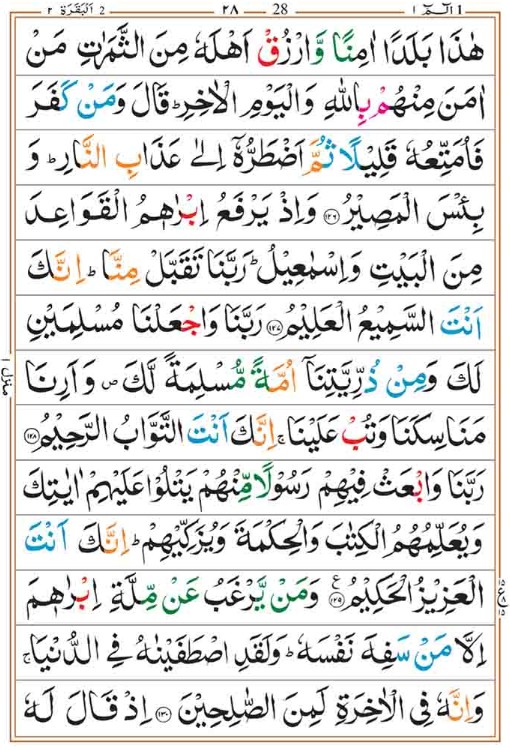 الٓمّٓ ١ 1 28 ٢٨ اَلْبَقَرَة ٢ 2
هٰذَا بَلَدًا اٰمِنًا وَّارْزُقْ اَهْلَهٗ مِنَ الثَّمَرٰتِ مَنْ
اٰمَنَ مِنْهُمْ بِاللّٰهِ وَالْيَوْمِ الْاٰخِرِ ؕ قَالَ وَمَنْ كَفَرَ
فَاُمَتِّعُهٗ قَلِيْلًا ثُمَّ اَضْطَرُّهٗۤ اِلٰى عَذَابِ النَّارِ ؕ وَ
بِئْسَ الْمَصِيْرُ ۝١٢٦ وَاِذْ يَرْفَعُ اِبْرٰهٖمُ الْقَوَاعِدَ
مِنَ الْبَيْتِ وَاِسْمٰعِيْلُ ؕ رَبَّنَا تَقَبَّلْ مِنَّا ؕ اِنَّكَ
اَنْتَ السَّمِيْعُ الْعَلِيْمُ ۝١٢٧ رَبَّنَا وَاجْعَلْنَا مُسْلِمَيْنِ
لَكَ وَمِنْ ذُرِّيَّتِنَاۤ اُمَّةً مُّسْلِمَةً لَّكَ ۪ وَاَرِنَا
مَنَاسِكَنَا وَتُبْ عَلَيْنَا ۚ اِنَّكَ اَنْتَ التَّوَّابُ الرَّحِيْمُ ۝١٢٨
رَبَّنَا وَابْعَثْ فِيْهِمْ رَسُوْلًا مِّنْهُمْ يَتْلُوْا عَلَيْهِمْ اٰيٰتِكَ
وَيُعَلِّمُهُمُ الْكِتٰبَ وَالْحِكْمَةَ وَيُزَكِّيْهِمْ ؕ اِنَّكَ اَنْتَ
الْعَزِيْزُ الْحَكِيْمُ ۝١٢٩ ع وَمَنْ يَّرْغَبُ عَنْ مِّلَّةِ اِبْرٰهٖمَ
اِلَّا مَنْ سَفِهَ نَفْسَهٗ ؕ وَلَقَدِ اصْطَفَيْنٰهُ فِى الدُّنْيَا ۚ
وَاِنَّهٗ فِى الْاٰخِرَةِ لَمِنَ الصّٰلِحِيْنَ ۝١٣٠ اِذْ قَالَ لَهٗ
منزل ١